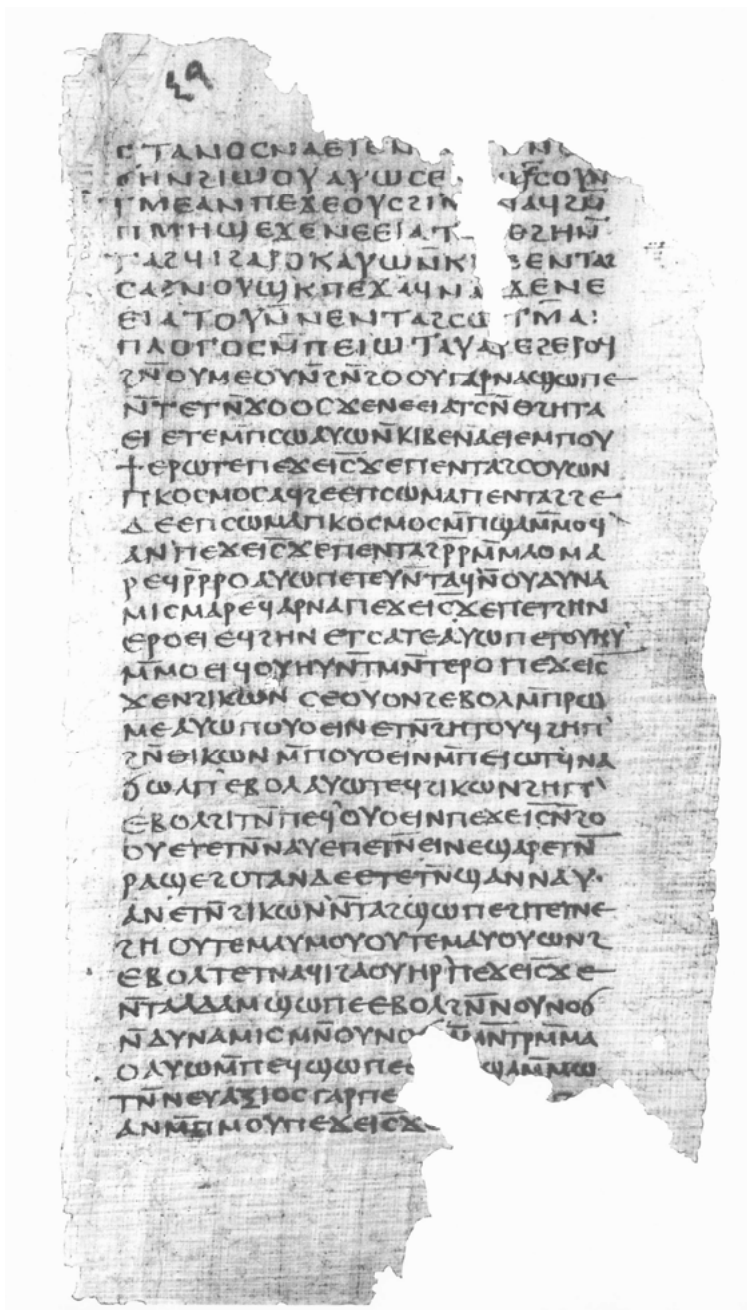 ⲥⲧⲁⲛⲟⲥⲛⲁⲉⲓⲉⲛ
ϭⲏⲛϩⲓⲱⲟⲩⲁⲩⲱⲥⲉ ϣⲥⲟⲩⲛ̄
ⲧⲙⲉⲁⲛⲡⲉϫⲉⲟⲩⲥϩⲓⲙ ⲛⲁϥϩⲙ̄
ⲡⲙⲏϣⲉϫⲉⲛⲉⲉⲓⲁⲧ ⲑϩⲏⲛ̄
ⲧⲁϩϥⲓϩⲁⲣⲟⲕⲁⲩⲱⲛ̄ⲕⲓ ⲃⲉⲉⲛⲧⲁϩ
ⲥⲁⲛⲟⲩϣⲕⲡⲉϫⲁϥⲛⲁ ϫⲉⲛⲉ
ⲉⲓⲁⲧⲟⲩⲛ̄ⲛⲉⲛⲧⲁϩⲥⲱ ⲧⲙ̄ⲁ
ⲡⲗⲟⲅⲟⲥⲙ̄ⲡⲉⲓⲱⲧⲁⲩⲁⲣⲉϩⲉⲣⲟϥ
ϩⲛ̄ⲟⲩⲙⲉⲟⲩⲛ̄ϩⲛ̄ϩⲟⲟⲩⲅⲁⲣⲛⲁϣⲱⲡⲉ
ⲛ̄ⲧⲉⲧⲛ̄ϫⲟⲟⲥϫⲉⲛⲉⲉⲓⲁⲧⲥⲛ̄ⲑϩⲏⲧⲁ
ⲉⲓⲉⲧⲉⲙⲡⲥⲱⲁⲩⲱⲛ̄ⲕⲓⲃⲉⲛⲁⲉⲓⲉⲙⲡⲟⲩ
ϯⲉⲣⲱⲧⲉⲡⲉϫⲉⲓⲥ̄ϫⲉⲡⲉⲛⲧⲁϩⲥⲟⲩⲱⲛ
ⲡⲕⲟⲥⲙⲟⲥⲁϥϩⲉⲉⲡⲥⲱⲙⲁⲡⲉⲛⲧⲁϩϩⲉ
ⲇⲉⲉⲡⲥⲱⲙⲁⲡⲕⲟⲥⲙⲟⲥⲙ̄ⲡϣⲁⲙ̄ⲙⲟϥ
ⲁⲛⲡⲉϫⲉⲓⲥ̄ϫⲉⲡⲉⲛⲧⲁϩⲣ̄ⲣⲙ̄ⲙⲁⲟⲙⲁ
ⲣⲉϥⲣ̄ⲣ̄ⲣⲟⲁⲩⲱⲡⲉⲧⲉⲩⲛ̄ⲧⲁϥⲛ̄ⲟⲩⲇⲩⲛⲁ
ⲙⲓⲥⲙⲁⲣⲉϥⲁⲣⲛⲁⲡⲉϫⲉⲓⲥ̄ϫⲉⲡⲉⲧϩⲏⲛ
ⲉⲣⲟⲉⲓⲉϥϩⲏⲛⲉⲧⲥⲁⲧⲉⲁⲩⲱⲡⲉⲧⲟⲩⲏⲩ
ⲙ̄ⲙⲟⲉⲓϥⲟⲩⲏⲩⲛ̄ⲧⲙⲛ̄ⲧⲉⲣⲟⲡⲉϫⲉⲓⲥ̄
ϫⲉⲛϩⲓⲕⲱⲛⲥⲉⲟⲩⲟⲛϩⲉⲃⲟⲗⲙ̄ⲡⲣⲱ
ⲙⲉⲁⲩⲱⲡⲟⲩⲟⲉⲓⲛⲉⲧⲛ̄ϩⲏⲧⲟⲩϥϩⲏⲡ
ϩⲛ̄ⲑⲓⲕⲱⲛⲙ̄ⲡⲟⲩⲟⲉⲓⲛⲙ̄ⲡⲉⲓⲱⲧϥⲛⲁ
ϭⲱⲗⲡⲉⲃⲟⲗⲁⲩⲱⲧⲉϥϩⲓⲕⲱⲛϩⲏⲡ
ⲉⲃⲟⲗϩⲓⲧⲛ̄ⲡⲉϥⲟⲩⲟⲉⲓⲛⲡⲉϫⲉⲓⲥ̄ⲛ̄ϩⲟ
ⲟⲩⲉⲧⲉⲧⲛ̄ⲛⲁⲩⲉⲡⲉⲧⲛ̄ⲉⲓⲛⲉϣⲁⲣⲉⲧⲛ̄
ⲣⲁϣⲉϩⲟⲧⲁⲛⲇⲉⲉⲧⲉⲧⲛ̄ϣⲁⲛⲛⲁⲩ
ⲁⲛⲉⲧⲛ̄ϩⲓⲕⲱⲛⲛ̄ⲧⲁϩϣⲱⲡⲉϩⲓⲧⲉⲧⲛⲉ
ϩⲏⲟⲩⲧⲉⲙⲁⲩⲙⲟⲩⲟⲩⲧⲉⲙⲁⲩⲟⲩⲱⲛϩ
ⲉⲃⲟⲗⲧⲉⲧⲛⲁϥⲓϩⲁⲟⲩⲏⲣⲡⲉϫⲉⲓⲥ̄ϫⲉ
ⲛ̄ⲧⲁⲁⲇⲁⲙϣⲱⲡⲉⲉⲃⲟⲗϩⲛ̄ⲛⲟⲩⲛⲟϭ
ⲛ̄ⲇⲩⲛⲁⲙⲓⲥⲙⲛ̄ⲟⲩⲛⲟϭ ⲙ̄ⲙⲛ̄ⲧⲣⲙ̄ⲙⲁ
ⲟⲁⲩⲱⲙ̄ⲡⲉϥϣⲱⲡⲉ ϣⲁⲙ̄ⲙⲱ
ⲧⲛ̄ⲛⲉⲩⲁⲝⲓⲟⲥⲅⲁⲣⲡⲉ
ⲁⲛⲙ̄ⲡⲙⲟⲩⲡⲉϫⲉⲓⲥ̄ϫ